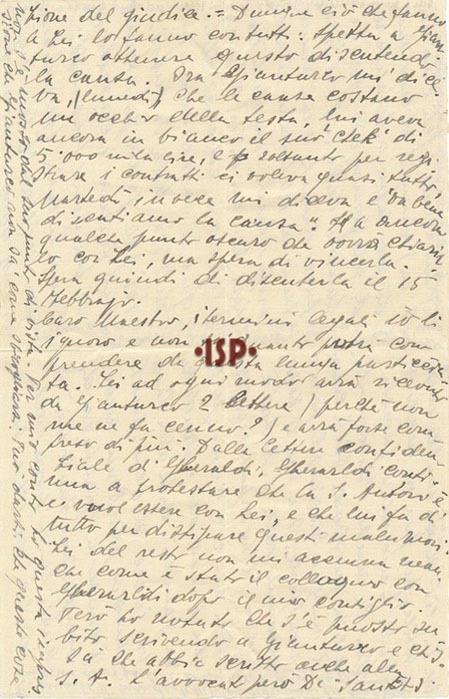 zione del giudice. = Dunque ciò che fanno
a Lei lo fanno con tutti: spetta a Gian
turco ottenere questo discutendo
la causa. Ma Gianturco mi dice
va, (lunedì), che la causa costava
un occhio della testa, lui aveva
ancora in bianco il suo "chek" di
5'000 mila lire, e soltanto per regi
strare i contratti ci voleva quasi tutto,
Martedì invece mi diceva è "va bene
discutiamo la causa". Ha ancora
qualche punto oscuro da
lo con Lei, ma spera di vincerla.
Spera quindi di discuterla il 15
Febbraio.
Caro Maestro, i termini legali io li
ignoro e non quanto potrà com
prendere da questa lunga pasticcia
ta. Lei ad ogni modo avrà ricevuto
da Gianturco 2 lettere (perché non
me ne fa cenno?) e avrà forse com
preso di più. Dalla lettera confiden
ziale di Gherardi, Gherardi conti-
nua a protestare che la S. Autori
vuol essere con Lei, e che lui fa di
tutto per dissipare questi malumori.
Lei del resto non mi accenna nean
che come è stato il colloquio con
Gherardi dopo il mio consiglio.
Però ho notato che s'è mosso su
bito scrivendo a Gianturco e
sa che abbia scritto anche alla
S. A. L'avvocato però De Sanctis
non s'è mosso dal suo punto di vista. Per mio conto ho questa impres
sione che Gianturco non sa come
ISP